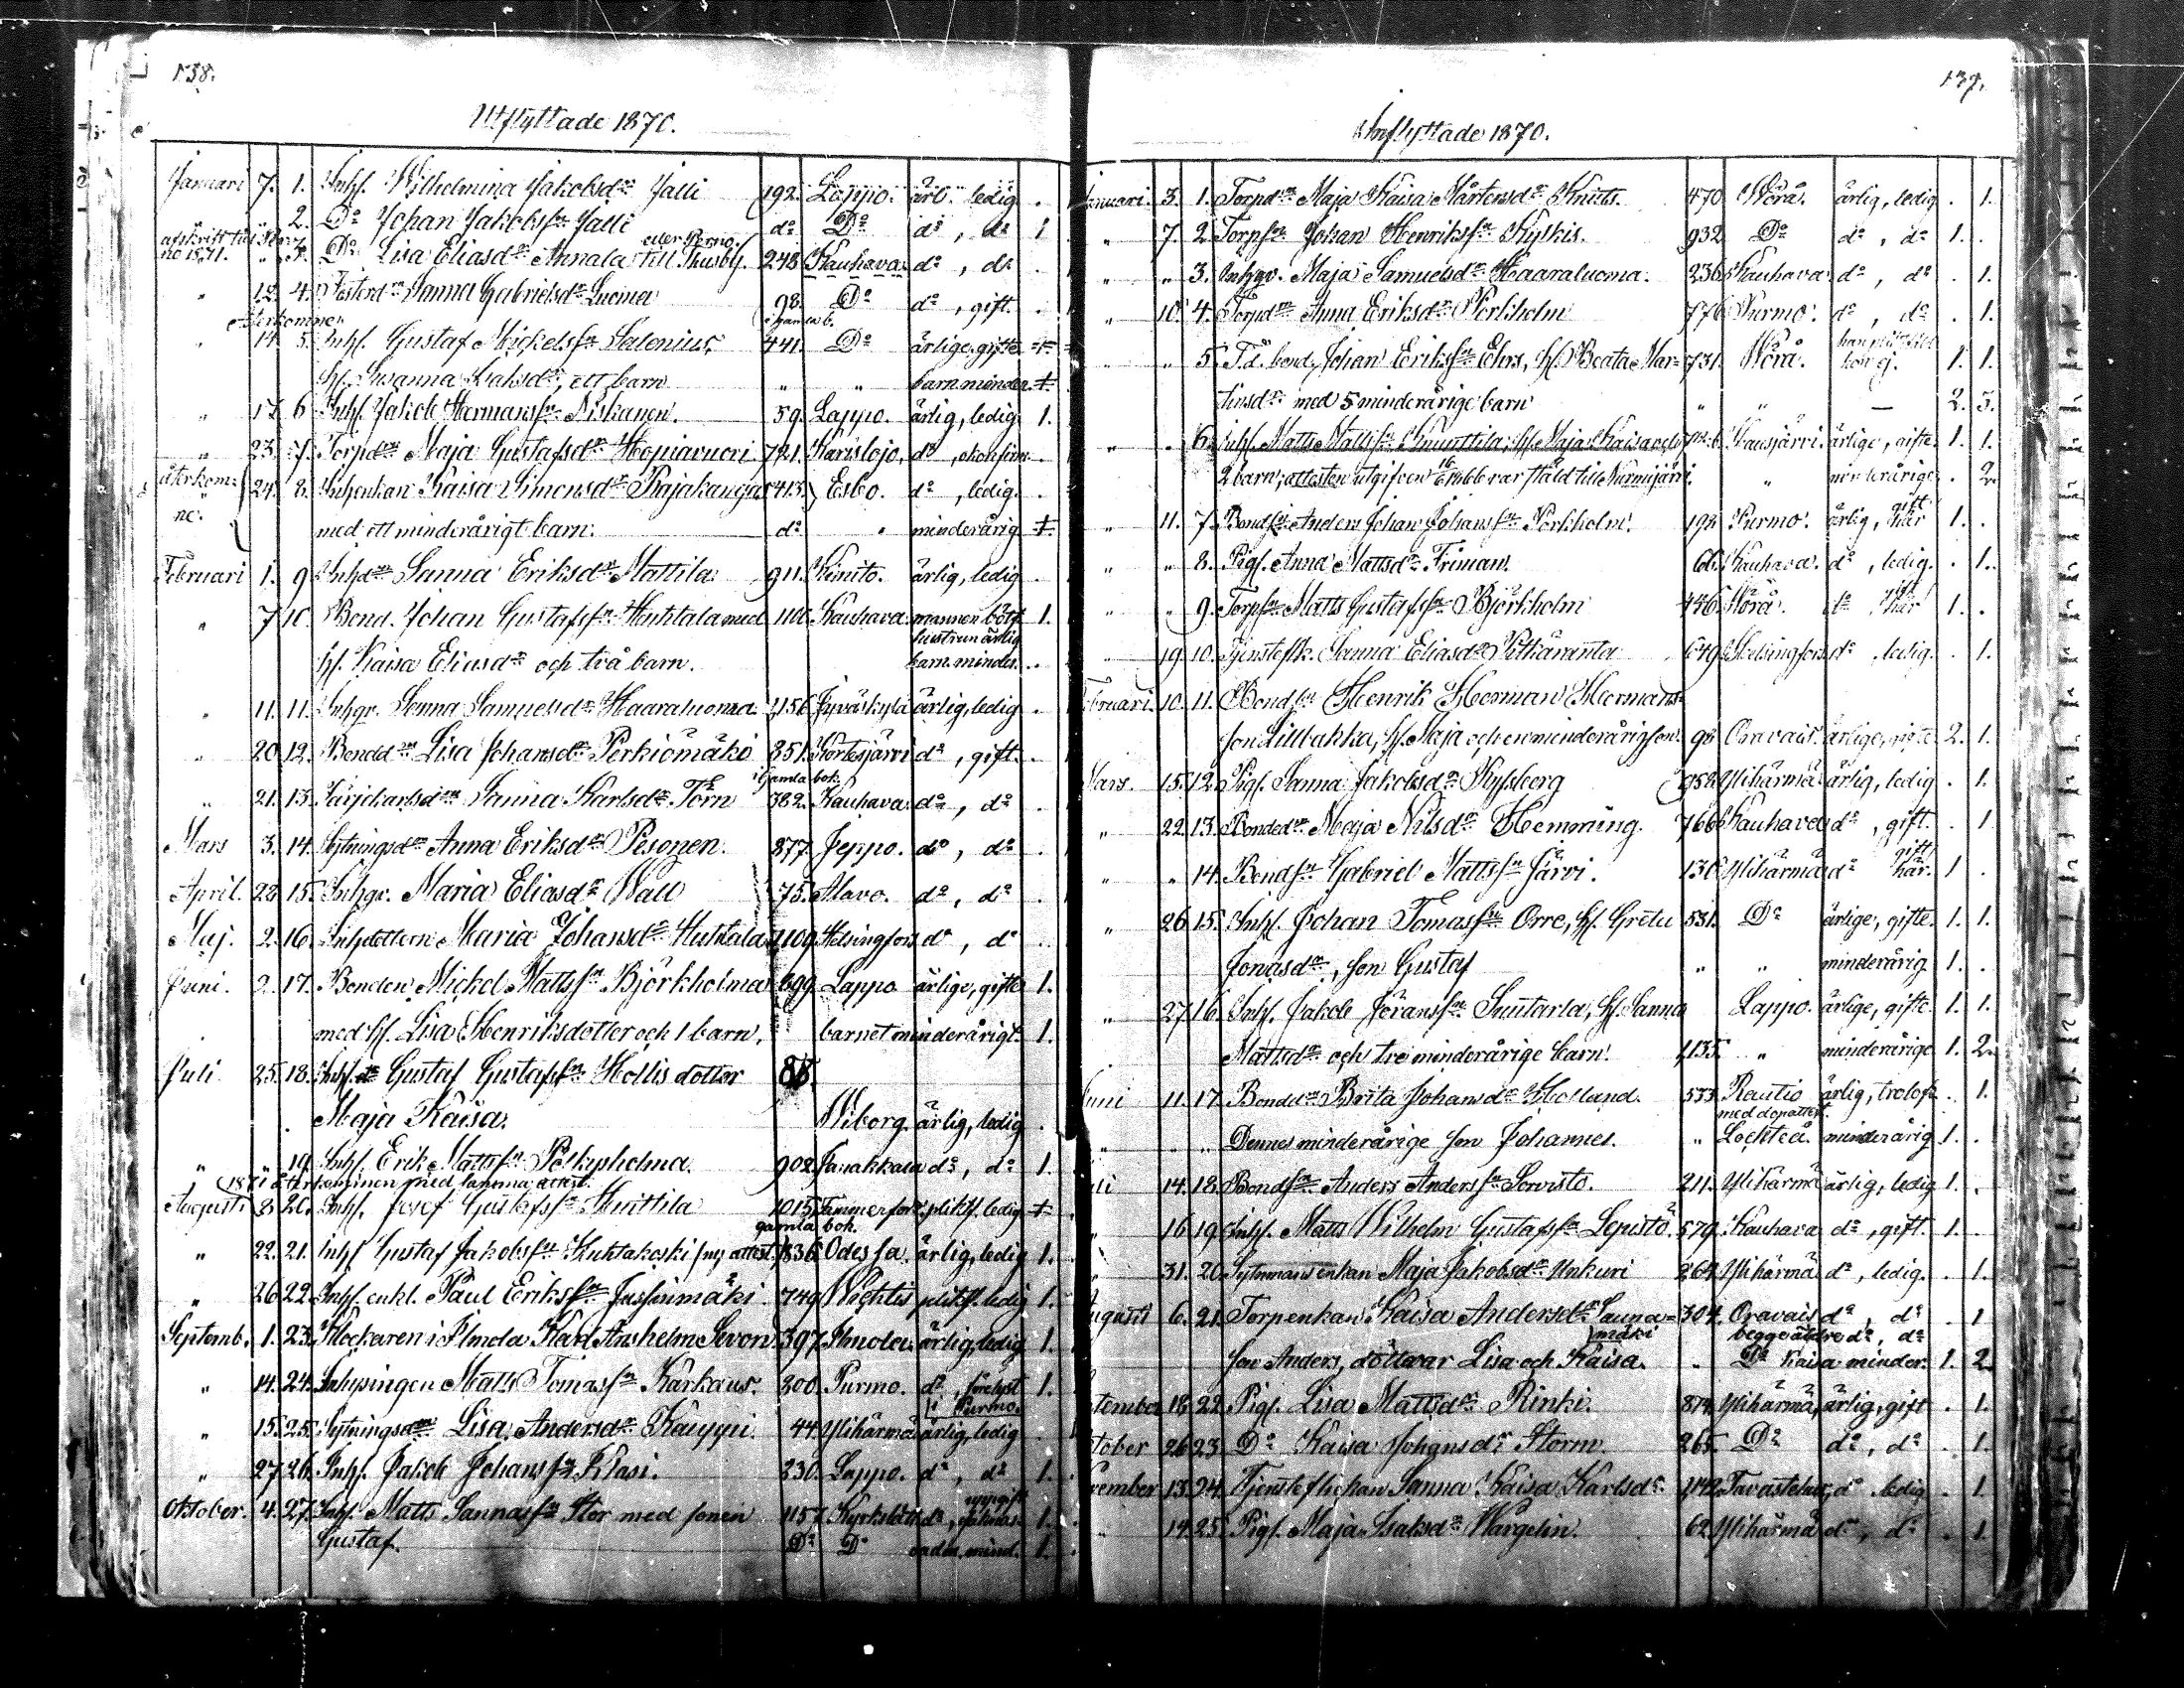 138.
Utflyttade 1870.
Januari 7. 1. Inhs. Wilhelmina Jakobsdr Jalli 192. Lappo. ärl. ledig .
" " 2. Do Johan Jakobssn Jalli do Do do, do 1
afskrift till
no 1871. " 3. Do Lisa Eliasdr Annala till Thusby. eller Perno. 248 Kauhava do, do .
" 12. 4. Sanna Gabrielsdr Luoma 98. Do do, gift. .
återkommen gamla b.
" 14. 5. Inhs. Gustaf Mickelssn Salonius, 441. Do ärlige, gifte 1
hs. Susanna Isaksdr, ett barn " " barn. minder. 1.
" 17. 6. Inhs. Jakob Hermanssn Niskanen. 59. Lappo. ärlig, ledig 1.
" 23. 7. Torpdrn Maja Gustafsdr Hopiavuori 721. Karislojo. do, okonfirm. .
återkom= 24. 8. Inhenkan Kaisa Simonsdr Rajakangas 413. Esbo. do, ledig. .
ne. med ett minderårigt barn. do " minderårig 1.
Februari 1. 9. Inhsdrn Sanna Eriksdr Mattila 911. Kimito. ärlig, ledig .
" 7. 10. Bond. Johan Gustafssn Huhtala med 1100. Kauhava. mannen bötf. 1.
hustrun ärlig
hs. Kaisa Eliasdr och två barn. barn. minder. .
" 11. 11. Inhgr. Senna Samuelsdr Haaraluoma 1156 Jyväskylä ärlig, ledig .
" 20. 12. Bonddrn Lisa Johansdr Perkiömäki 851. Kortesjärvi do, gift. .
i gamla bok.
" 21. 13. Sanna Karlsdr Törn 782. Kauhava. do, do .
Mars 3. 14. Sytningsdrn Anna Eriksdr Pesonen. 877. Jeppo. do, do .
April. 22. 15. Inhgr. Maria Eliasdr Wall 75. Alavo. do, do .
Maj. 2. 16. Inhsdottern Maria Johansdr Huhtala 1109. Helsingfors do, do .
Juni. 2. 17. Bonden Mickel Mattssn Björkholma 699. Lappo ärlige, gifte 1.
med hs. Lisa Henriksdotter och 1 barn, barnet minderårigt. 1.
Juli 25. 18. Inhs. Gustaf Gustafssn Hollis dotter 88.
Maja Kaisa. Wiborg. ärlig, ledig .
" " 19. Inhs. Erik Mattssn Pelkysholma. 902. Janakkala do, do 1.
1871 återkommen med samma attest.
Augusti 8. 20. Inhs. Josef Gustafssn Hunttila 1015. Tammerfors ledig 1
gamla bok.
" 22. 21. Inhs Gustaf Jakobssn Huhtakoski (ny attest) 836. Odessa. ärlig, ledig 1.
" 26. 22. Inhs. enkl. Paul Erikssn Jussinmäki 749. Wichtis ledig 1.
Septemb. 1. 23. Klockaren i Ilmola Karl Anshelm Sevon 397. Ilmola. ärlig, ledig 1.
" 14. 24. Inhysingen Matts Tomassn Kärkaus. 300. Purmo. do, förelyst 1.
i Purmo.
" 15. 25. Sytningsdrn Lisa Andersdr Kauppi. 44. Ylihärmä ärlig, ledig .
" 27. 26. Inhs. Jakob Johanssn Klasi. 230. Lappo. do, do 1.
Oktober. 4. 27. Inhs. Matts Sannassn Stor med sonen 1157. Kyrkslätt do, 1.
Gustaf. Do Do 1.
137.
Inflyttade 1870.
Januari. 3. 1. Torpdrn Maja Kaisa Mårtensdr Knuts. 470 Wörå. ärlig, ledig . 1.
" 7. 2. Torpsn Johan Henrikssn Kyskis. 932 Do do, do 1. .
" " 3. Inhgr. Maja Samuelsdr Haaraluoma. 236. Kauhava do, do . 1.
" 10. 4. Torpdrn Anna Eriksdr Porkholm 776 Purmo. do, do . 1.
" " 5. F.d. bond. Johan Erikssn Ehrs, hs. Beata Mar= 731. Wörå. 1. 1.
tinsdr med 5 minderårige barn " " — 2. 3.
" " 6. Inhs. Matts Mattssn Knuuttila, hs. Maja Kaisa och Kausjärvi ärlige, gifte. 1. 1.
2 barn, attesten utgifven var ställd till Nurmijärvi. " minderårige . 2.
" 11. 7. Bondsn Anders Johan Johanssn Porkholm. 192. Purmo. ärlig, gift här 1. .
" " 8. Pigs. Anna Mattsdr Friman. 66. Kauhava. do, ledig. . 1.
" " 9. Torpsn Matts Gustafssn Björkholm 446. Wörå. do gift här 1. .
" 19. 10. Sanna Eliasdr Pitkäranta 649. Helsingfors do, ledig. . 1.
Februari. 10. 11. Bondsn Henrik Herman Hermans=
son Lillbakka, hs. Maja och en minderårig son. 98. Oravais. ärlige, gifte 2. 1.
Mars. 15. 12. Pigs. Sanna Jakobsdr Nysberg 958. Ylihärmä ärlig, ledig . 1.
" 22. 13. Bonddrn Maja Nilsdr Hemming. 766b Kauhava do, gift. . 1
" " 14. Bondsn Gabriel Mattssn Järvi. 136 Ylihärmä do gift här. 1 .
" 26. 15. Inhs. Johan Tomassn Orre, hs. Greta 531. Do ärlige, gifte. 1. 1.
Jonasdr, son Gustaf " " minderårig 1. .
" 27. 16. Inhs. Jakob Jöranssn Suutarla, hs. Sanna Lappo. ärlige, gifte. 1. 1.
Mattsdr och tre minderårige barn. 1135. " minderårige 1. 2.
Juni 11. 17. Bonddrn Brita Johansdr Holland. 533 Rautio ärlig, trolof. . 1.
med dopattest.
" " " Dennes minderårige son Johannes. " Lochteå. minderårig 1. .
Juli 14. 18. Bondsn Anders Anderssn Sorvisto. 211. Ylihärmä ärlig, ledig 1. .
" 16. 19. Inhs. Matts Wilhelm Gustafssn Lepistö 579. Kauhava do, gift. 1. .
" 31. 20. Sytnmansenkan Maja Jakobsdr Unkuri 264. Ylihärmä do, ledig. . 1.
Augusti 6. 21. Torpenkan Kaisa Andersdr Sauna= 304. Oravais do, do . 1
mäki begge äldre do, do
son Anders, döttrar Lisa och Kaisa. " Do Kaisa minder. 1. 2.
September 18. 22. Pigs. Lisa Mattsdr Rinki. 874. Ylihärmä, ärlig, gift . 1.
Oktober 26. 23. Do Kaisa Johansdr Storm 265. Do do, do . 1.
November 13. 24. Sanna Kaisa Karlsdr 1142. Tavastehus, do ledig . 1.
" 14. 25. Pigs. Maja Isaksdr Wargelin. 62. Ylihärmä do, do . 1.